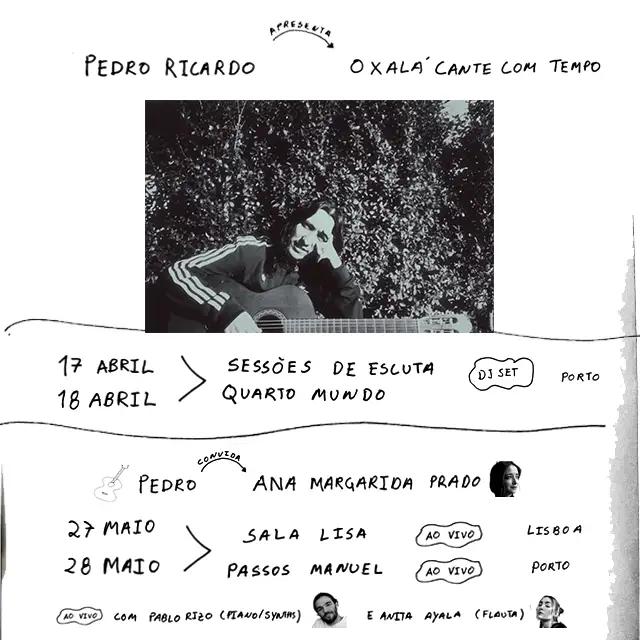 APRESENTA
PEDRO RICARDO OXALÁ CANTE COM TEMPO
17 ABRIL SESSÕES DE ESCUTA DJ SET PORTO
18 ABRIL QUARTO MUNDO
CONVIDA
PEDRO ANA MARGARIDA PRADO
27 MAIO SALA LISA AO VIVO LISBOA
28 MAIO PASSOS MANUEL AO VIVO PORTO
AO VIVO COM PABLO RIZO (PIANO/SYNTHS) E ANITA AYALA (FLAUTA)